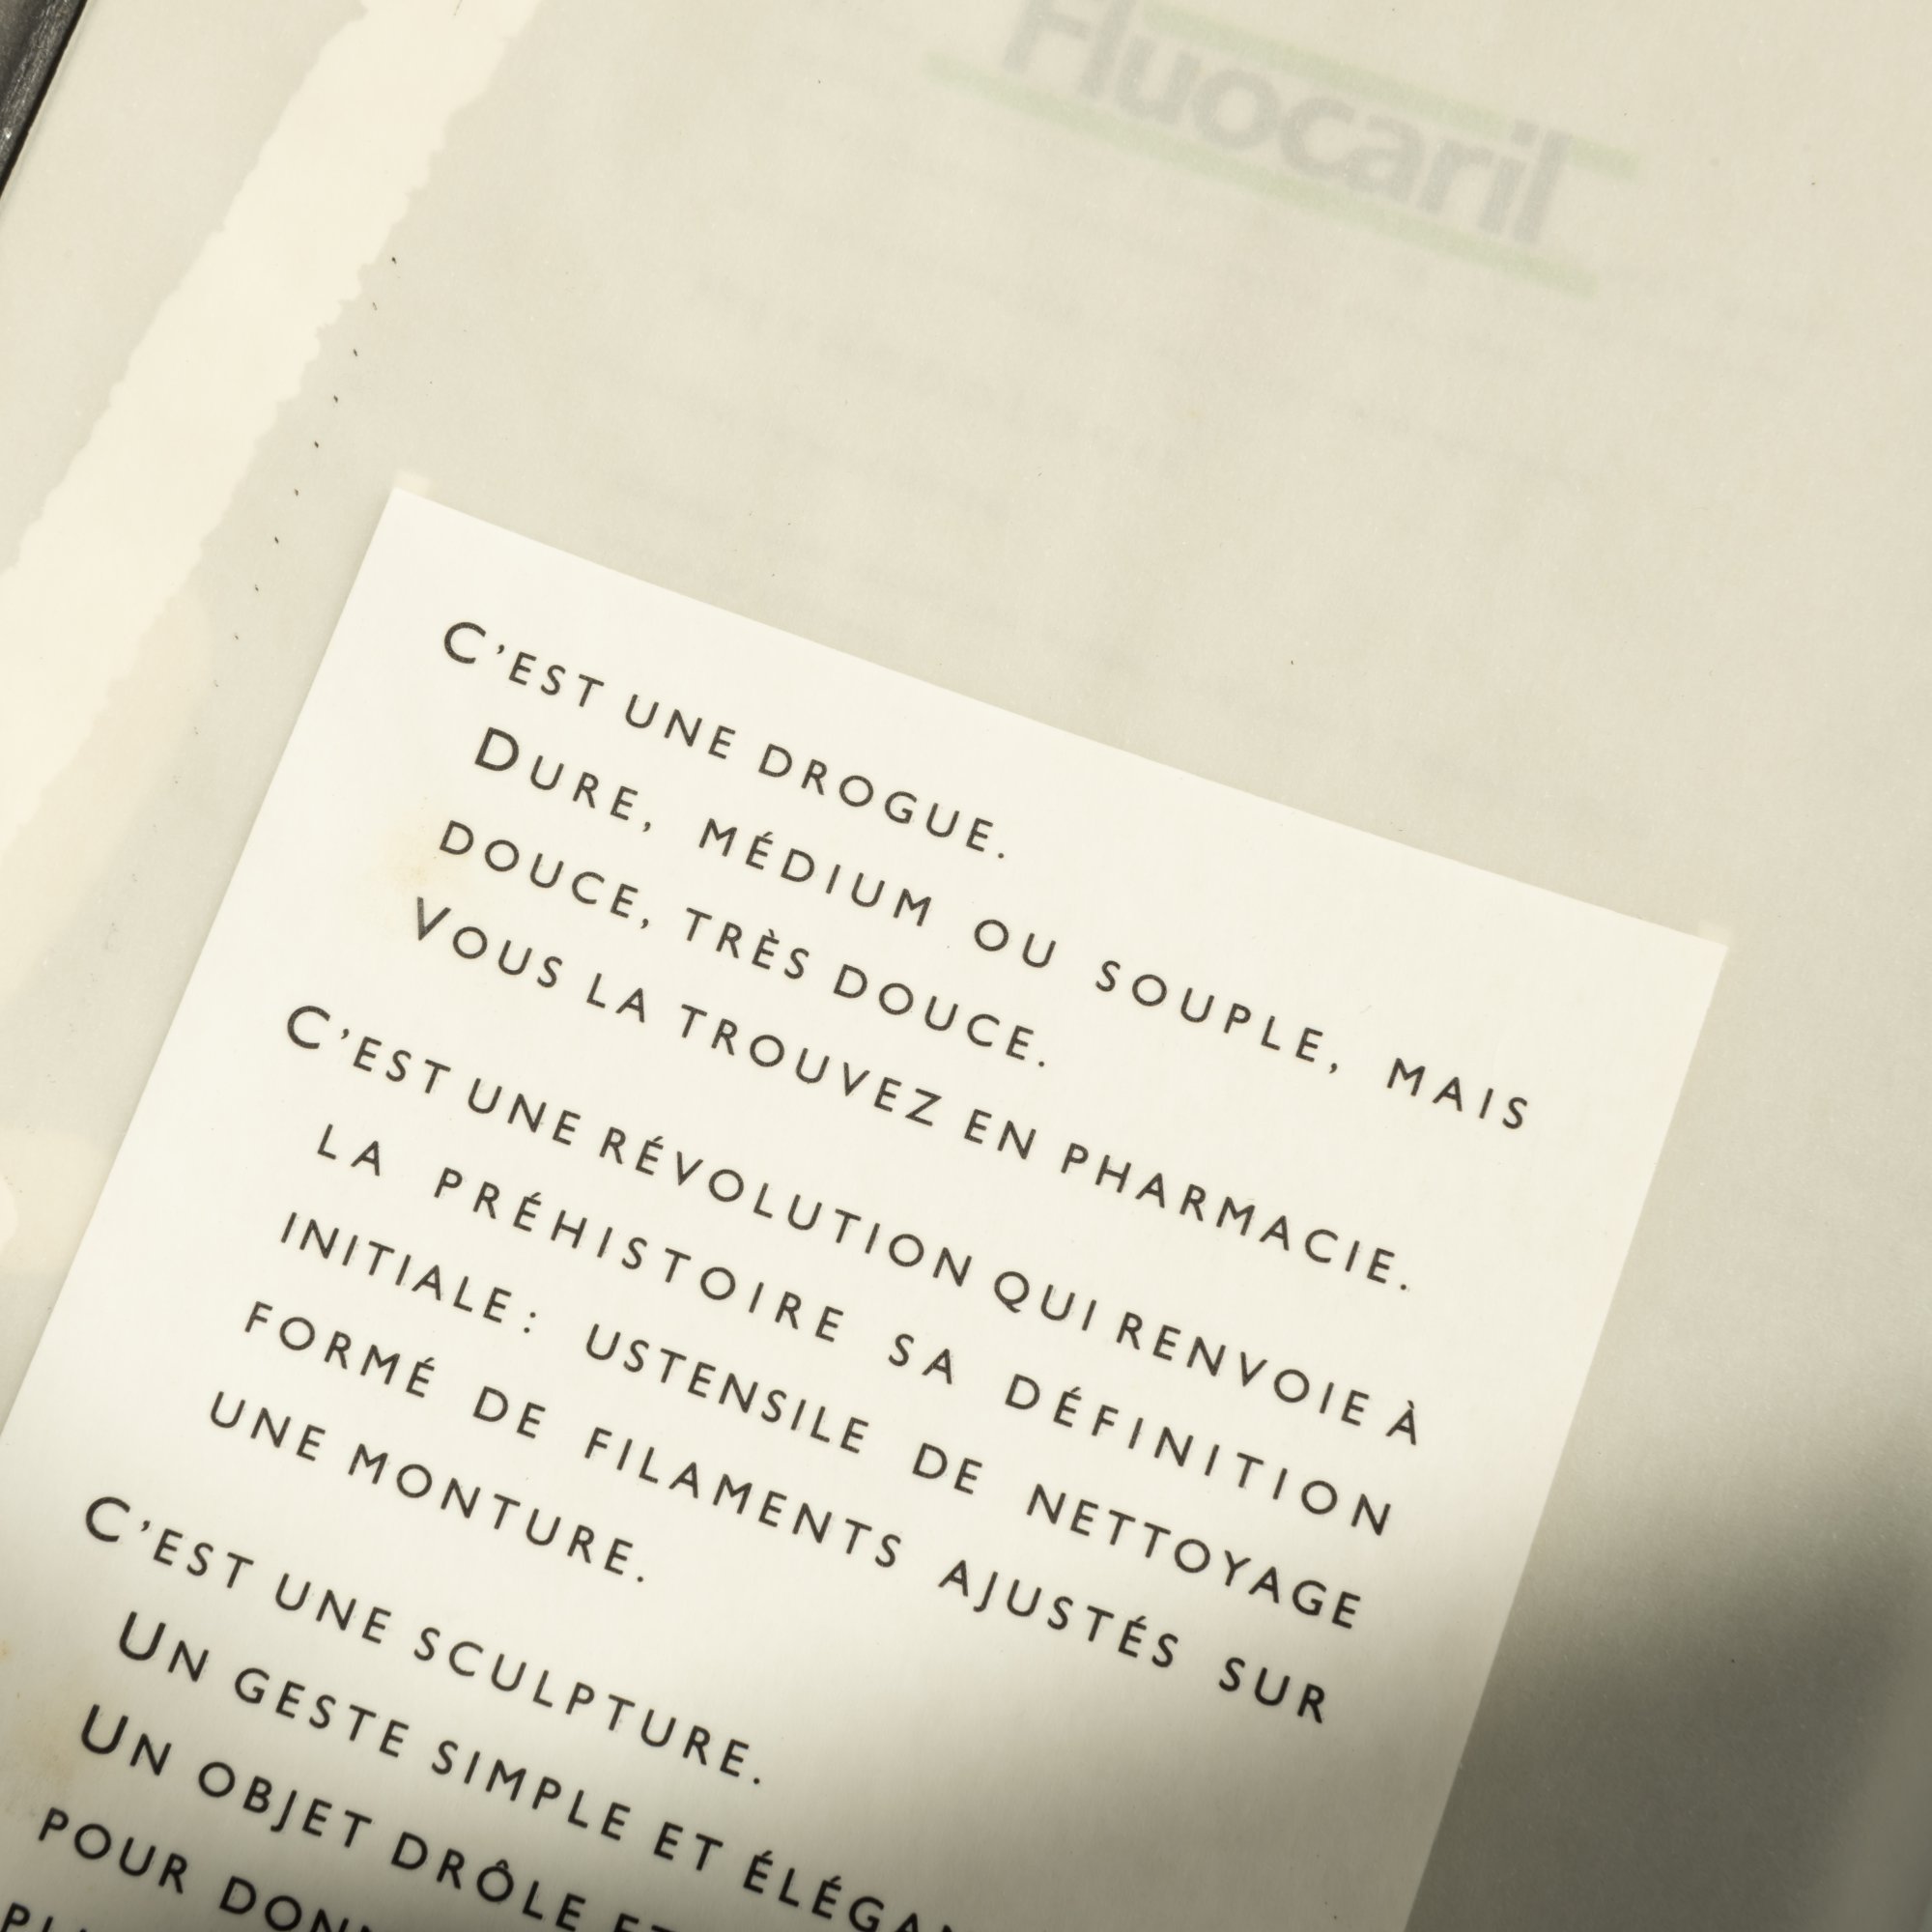 Fluocaril
C'EST UNE DROGUE.
DURE, MÉDIUM OU SOUPLE, MAIS
DOUCE, TRÈS DOUCE.
VOUS LA TROUVEZ EN PHARMACIE.
C'EST UNE RÉVOLUTION QUI RENVOIE À
LA PRÉHISTOIRE SA DÉFINITION
INITIALE: USTENSILE DE NETTOYAGE
FORMÉ DE FILAMENTS AJUSTÉS SUR
UNE MONTURE.
C'EST UNE SCULPTURE.
UN GESTE SIMPLE ET
UN OBJET DRÔLE
POUR